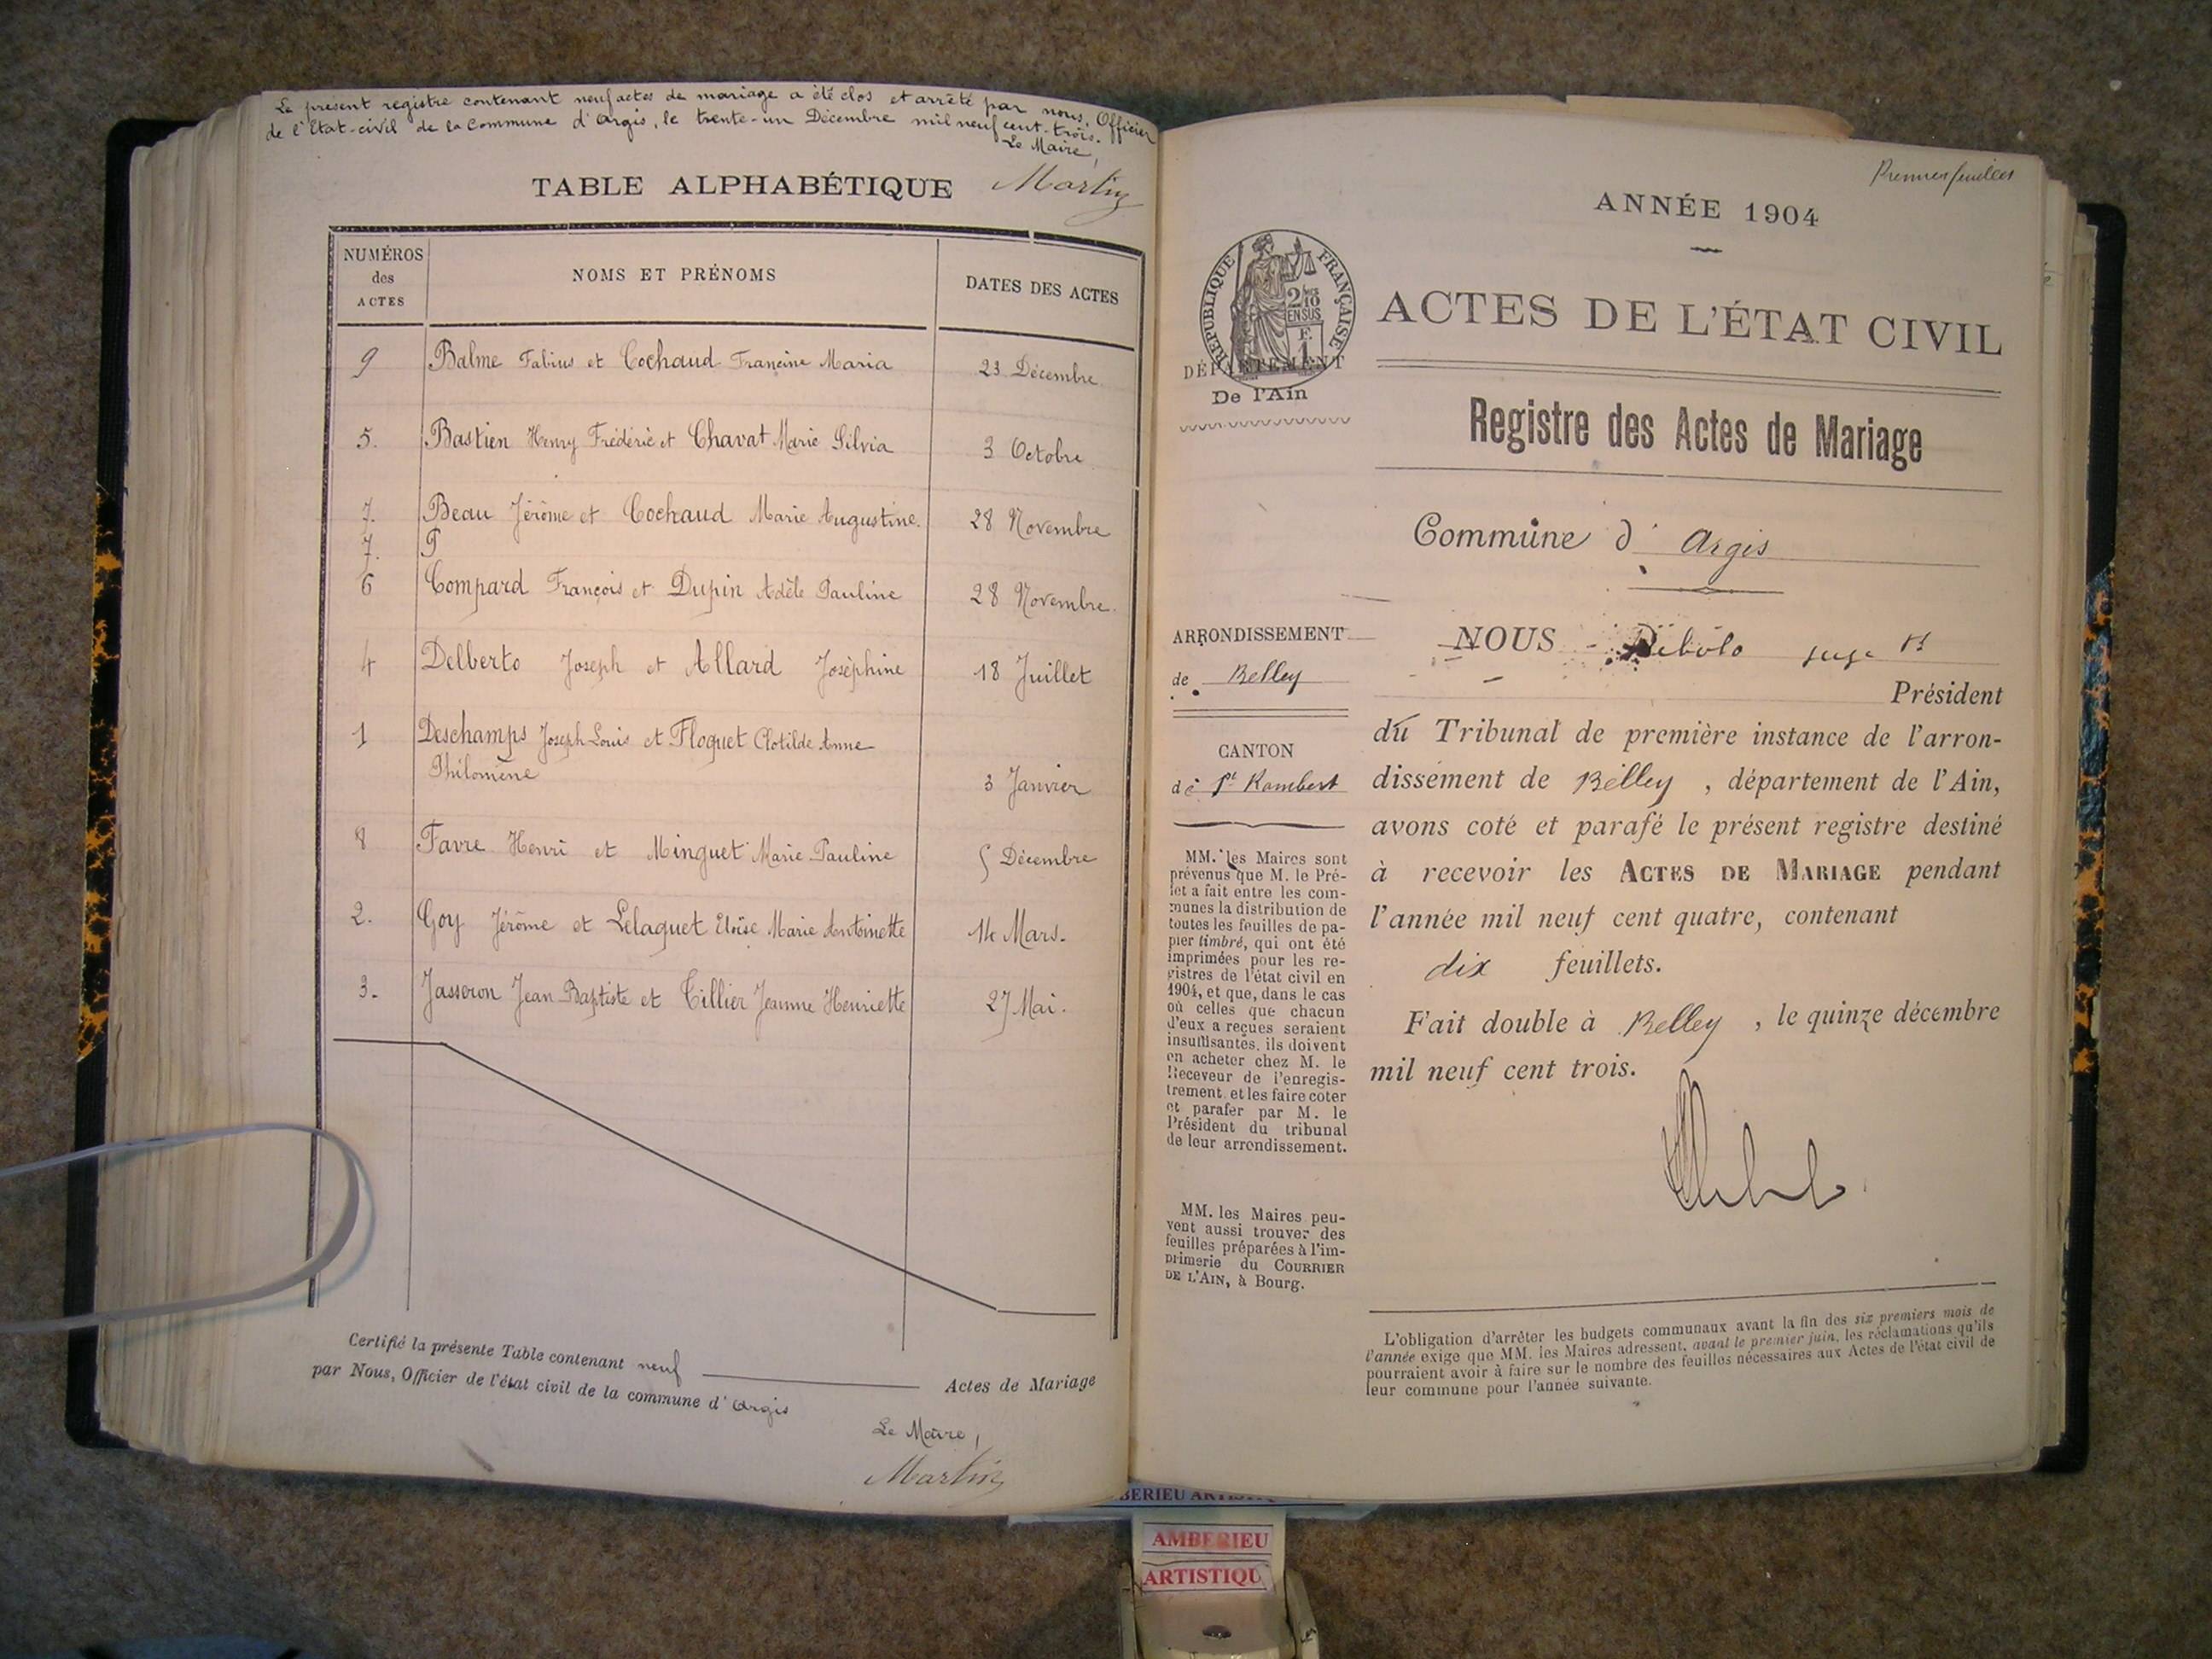 Le présent registre contenant neuf actes de mariage a été clos et arrêté par nous, Officier
de l'Etat-civil de la Commune d'Argis, le trente-un Décembre mil neuf cent-trois.
Le Maire,
Martin
TABLE ALPHABÉTIQUE
NUMÉROS des ACTES
NOMS ET PRÉNOMS
DATES DES ACTES
9 Balme Fabius et Cochaud Francine Maria 23 Décembre
5. Bastien Henry Frédéric et Chavat Marie Silvia 3 Octobre
7. Beau Jérôme et Cochaud Marie Augustine. 28 Novembre
7.
6 Compard François et Dupin Adèle Pauline 28 Novembre.
4 Delberto Joseph et Allard Joséphine 18 Juillet
1 Deschamps Joseph Louis et Floquet Clotilde Anne
Philomène 3 Janvier
8 Favre Henri et Minguet Marie Pauline 5 Décembre
2. Goy Jérôme et Lelaquet Eloïse Marie Antoinette 14 Mars.
3. Jasseron Jean Baptiste et Tillier Jeanne Henriette 27 Mai.
Certifié la présente Table contenant neuf Actes de Mariage
par Nous, Officier de l'état civil de la commune d'Argis
Le Maire,
Martin
Premier feuillet
ANNÉE 1904
RÉPUBLIQUE FRANÇAISE
2/10
EN SUS
F.
1
DÉPARTEMENT
De l'Ain
ACTES DE L'ÉTAT CIVIL
Registre des Actes de Mariage
Commune d' Argis
ARRONDISSEMENT
de Belley
CANTON
de St Rambert
MM. les Maires sont
prévenus que M. le Pré-
fet a fait entre les com-
munes la distribution de
toutes les feuilles de pa-
pier timbré, qui ont été
imprimées pour les re-
gistres de l'état civil en
1904, et que, dans le cas
où celles que chacun
d'eux a reçues seraient
insuffisantes, ils doivent
en acheter chez M. le
Receveur de l'enregis-
trement et les faire coter
et parafer par M. le
Président du tribunal
de leur arrondissement.
MM. les Maires peu-
vent aussi trouver des
feuilles préparées à l'im-
primerie du COURRIER
DE L'AIN, à Bourg.
NOUS juge
Président
du Tribunal de première instance de l'arron-
dissement de Belley, département de l'Ain,
avons coté et parafé le présent registre destiné
à recevoir les ACTES DE MARIAGE pendant
l'année mil neuf cent quatre, contenant
dix feuillets.
Fait double à Belley, le quinze décembre
mil neuf cent trois.
L'obligation d'arrêter les budgets communaux avant la fin des six premiers mois de
l'année exige que MM. les Maires adressent, avant le premier juin, les réclamations qu'ils
pourraient avoir à faire sur le nombre des feuilles nécessaires aux Actes de l'état civil de
leur commune pour l'année suivante.
AMBERIEU
ARTISTIQU